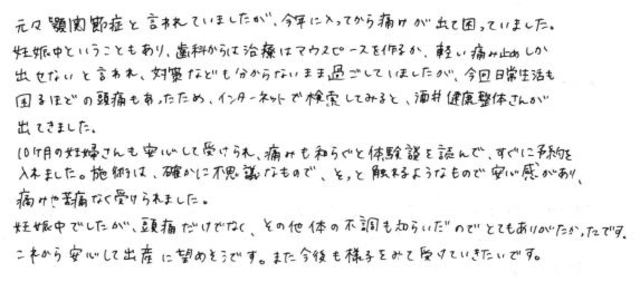 元々顎関節症と言われていましたが、今年に入ってから痛みが出て困っていました。
妊娠中ということもあり、歯科からは治療はマウスピースを作るか、軽い痛み止めしか
出せないと言われ、対策なども分からないまま過ごしていましたが、今回日常生活も
困るほどの頭痛もあったため、インターネットで検索してみると、酒井健康整体さんが
出てきました。
10ヶ月の妊婦さんも安心して受けられ、痛みも和らぐと体験談を読んで、すぐに予約を
入れました。施術は、確かに不思議なもので、そっと触れるようなもので安心感があり、
痛みや苦痛なく受けられました。
妊娠中でしたが、頭痛だけでなく、その他体の不調も和らいだのでとてもありがたかったです。
これから安心して出産に望めそうです。また今後も様子をみて受けていきたいです。